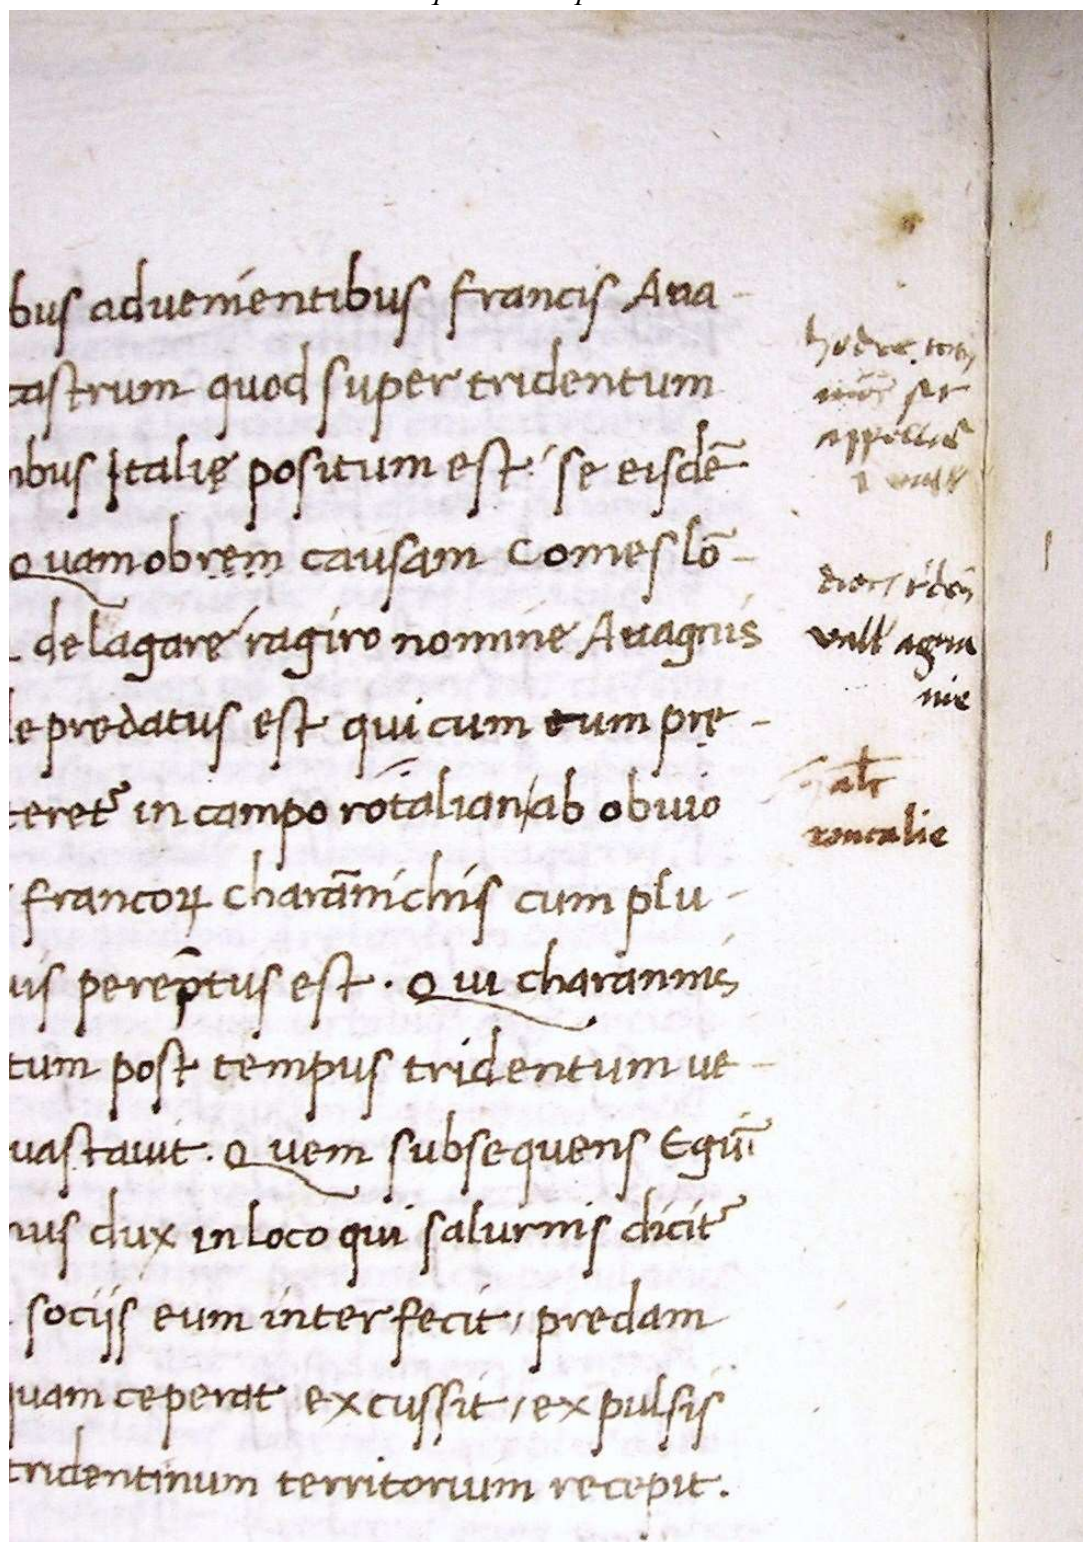 bus aduenientibus francis Ana-
castrum quod super tridentum
nibus Italię positum est: se eisdē
Quamobrem causam Comes lō-
de lagare ragiro nomine Anagnis
predatus est qui cum eum prę-
teret᷑ in campo rotalian/ab obuio
francoꝝ charāmichiis cum plu-
uis perēptus est. Qui charamnis
tum post tempus tridentum ue-
uastauit. Quem subsequens Eguī
nus dux in loco qui salurnis dicit᷑
sociis eum interfecit, predam
quam ceperat excussit, expulsis
tridentinum territorium recepit.
hodie
vall agna
nie
alr
roncalie